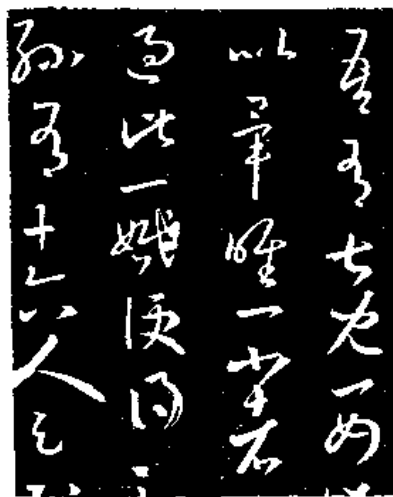 吾有七兒一女
以畢唯一小者
過此一婚便得
孫有十六人足